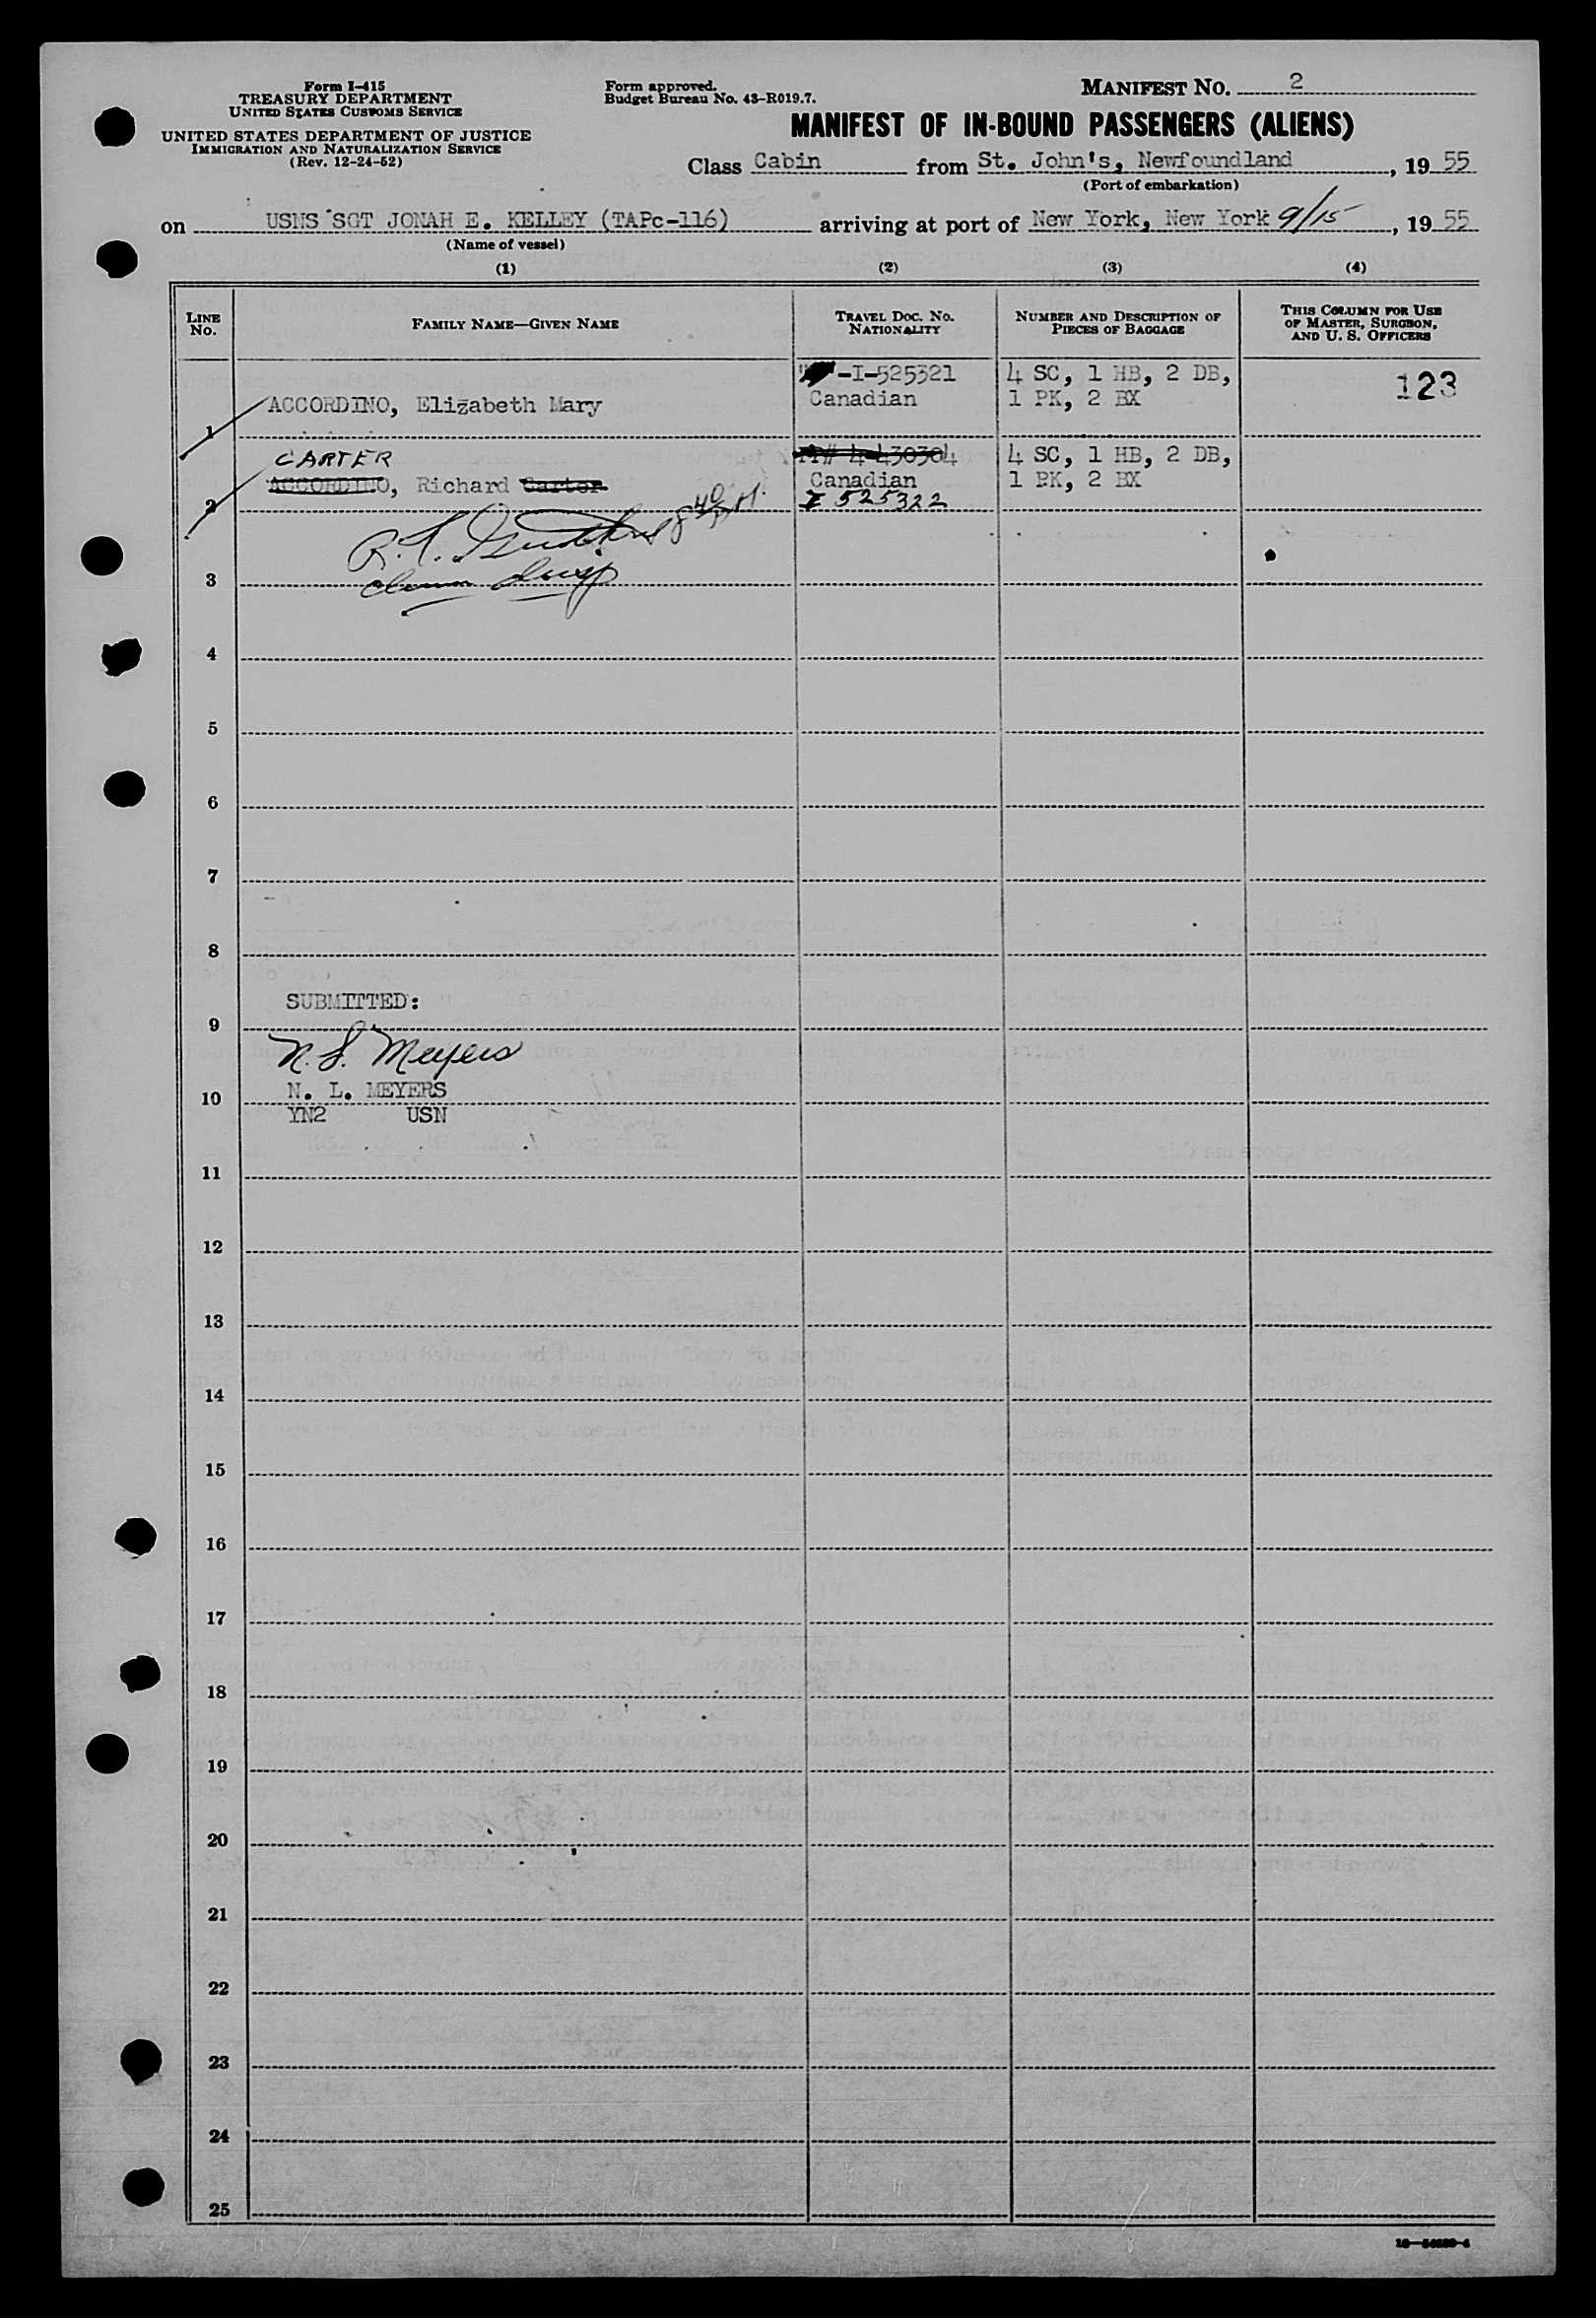 Form I-415
TREASURY DEPARTMENT
UNITED STATES CUSTOMS SERVICE
UNITED STATES DEPARTMENT OF JUSTICE
IMMIGRATION AND NATURALIZATION SERVICE
(Rev. 12-24-52)
Form approved.
Budget Bureau No. 43-R019.7.
MANIFEST NO. 2
MANIFEST OF IN-BOUND PASSENGERS (ALIENS)
Class Cabin from St. John's, Newfoundland, 19 55
(Port of embarkation)
on USNS SGT JONAH E. KELLEY (TAPc-116) arriving at port of New York, New York 9/15, 19 55
(Name of vessel)
(1) (2) (3) (4)
LINE NO.
FAMILY NAME—GIVEN NAME
TRAVEL DOC. NO. NATIONALITY
NUMBER AND DESCRIPTION OF PIECES OF BAGGAGE
THIS COLUMN FOR USE OF MASTER, SURGEON, AND U. S. OFFICERS
-I-525321 4 SC, 1 HB, 2 DB, 123
ACCORDINO, Elizabeth Mary Canadian 1 PK, 2 BX
1
CARTER PP# 4-430304 4 SC, 1 HB, 2 DB,
ACCORDINO, Richard Carter Canadian 1 PK, 2 BX
2 I 525322
3
4
5
6
7
8
SUBMITTED:
9
N. L. Meyers
N. L. MEYERS
10
YN2 USN
11
12
13
14
15
16
17
18
19
20
21
22
23
24
25